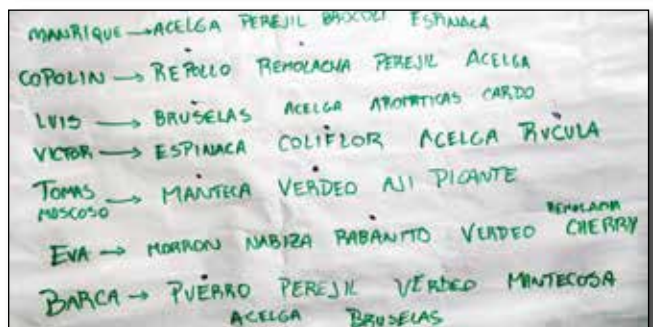 MANRIQUE → ACELGA PEREJIL BROCOLI ESPINACA
COPOLIN → REPOLLO REMOLACHA PEREJIL ACELGA
LUIS → BRUSELAS ACELGA AROMATICAS CARDO
VICTOR → ESPINACA COLIFLOR ACELGA RUCULA
TOMAS MOSCOSO → MANTECA VERDEO AJI PICANTE
REMOLACHA
EVA → MORRON NABIZA RABANITO VERDEO CHERRY
BARCA → PUERRO PEREJIL VERDEO MANTECOSA
ACELGA BRUSELAS